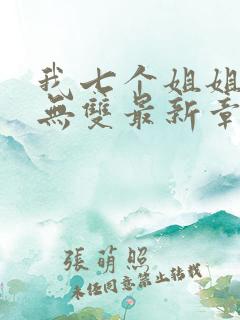 我七个姐姐
無雙最新章
張萌照
未经同意禁止转载